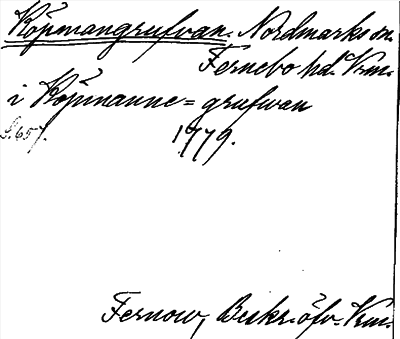 Köpmangrufvan. Nordmarks sn.
Fernebo hd. Vrm.
i Köpmanne=grufvan
S. 657. 1779.
Fernow, Beskr. öfv. Vrm.